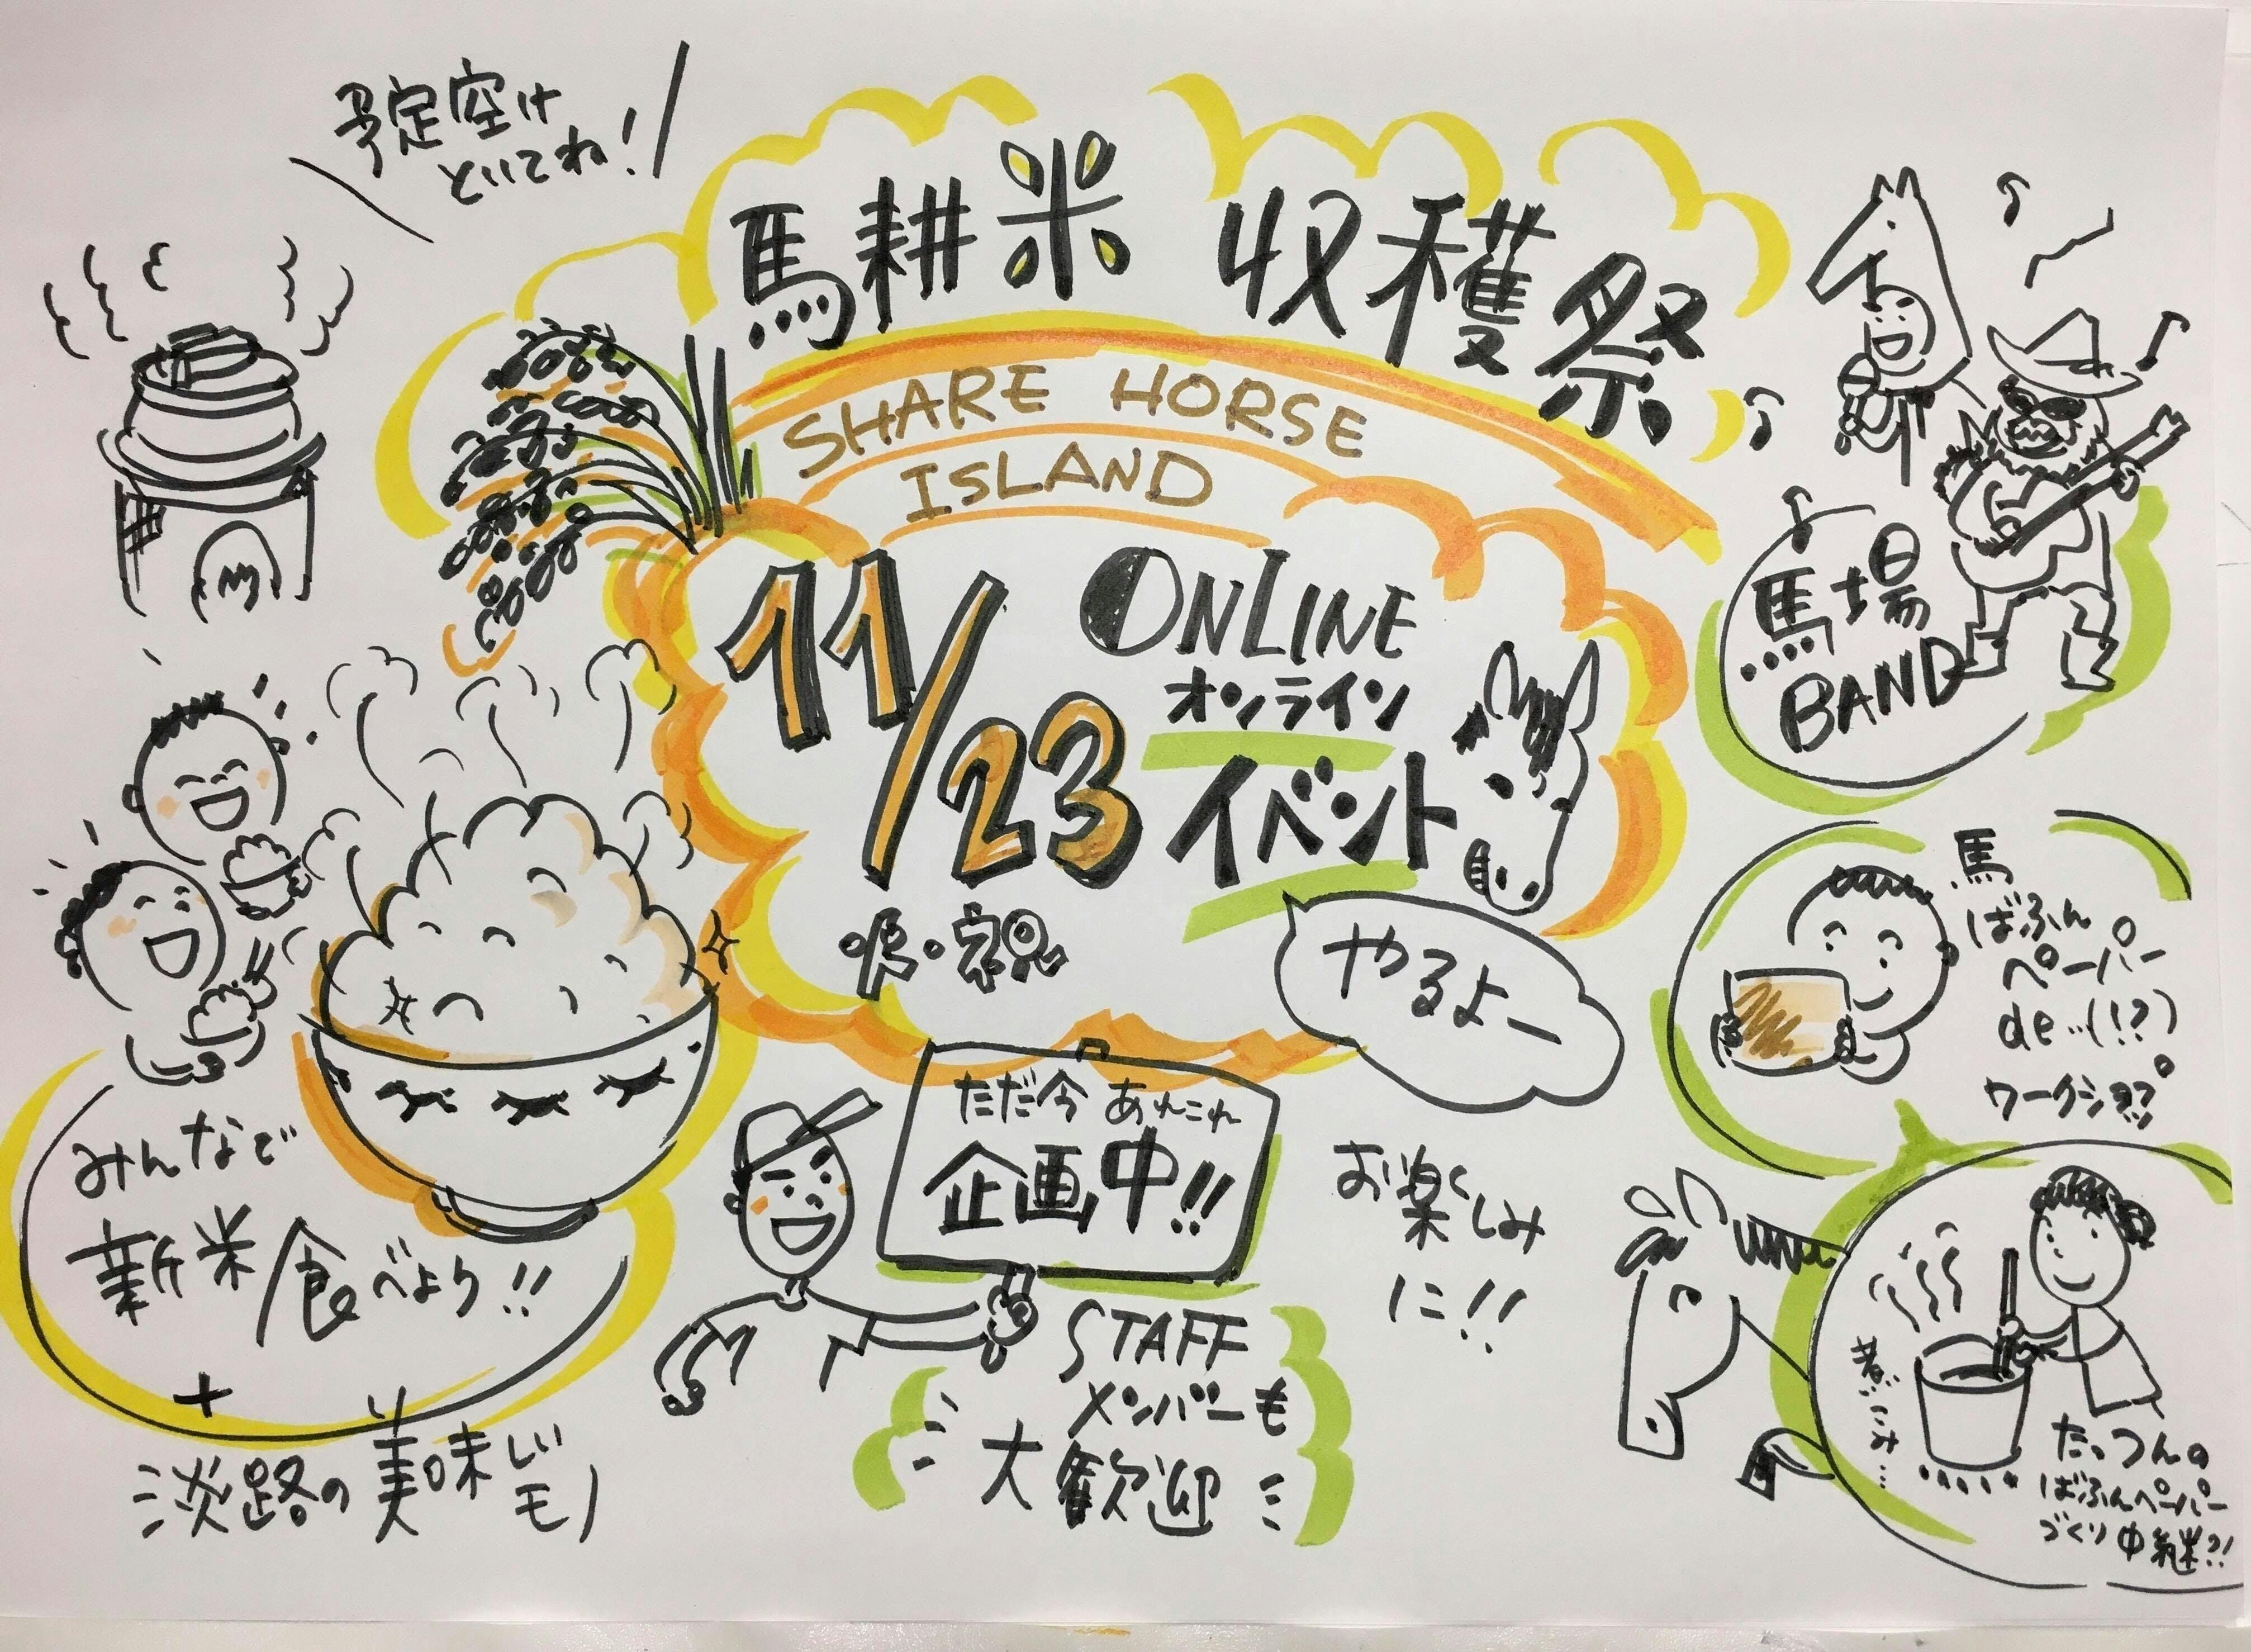 予定空け
といてね!
馬耕米 収穫祭
SHARE HORSE
ISLAND
11/23
ONLINE
オンライン
イベント
祝
やるよー
馬場
BAND
馬
ばふん
ペーパー
de…(!?)
ワークショップ
みんなで
新米食べよう!!
+
淡路の美味しい
モノ
ただ今 あれこれ
企画中!!
お楽しみ
に!!
STAFF
メンバーも
大歓迎
煮こみ…
たっつんの
ばふんペーパー
づくり中継?!